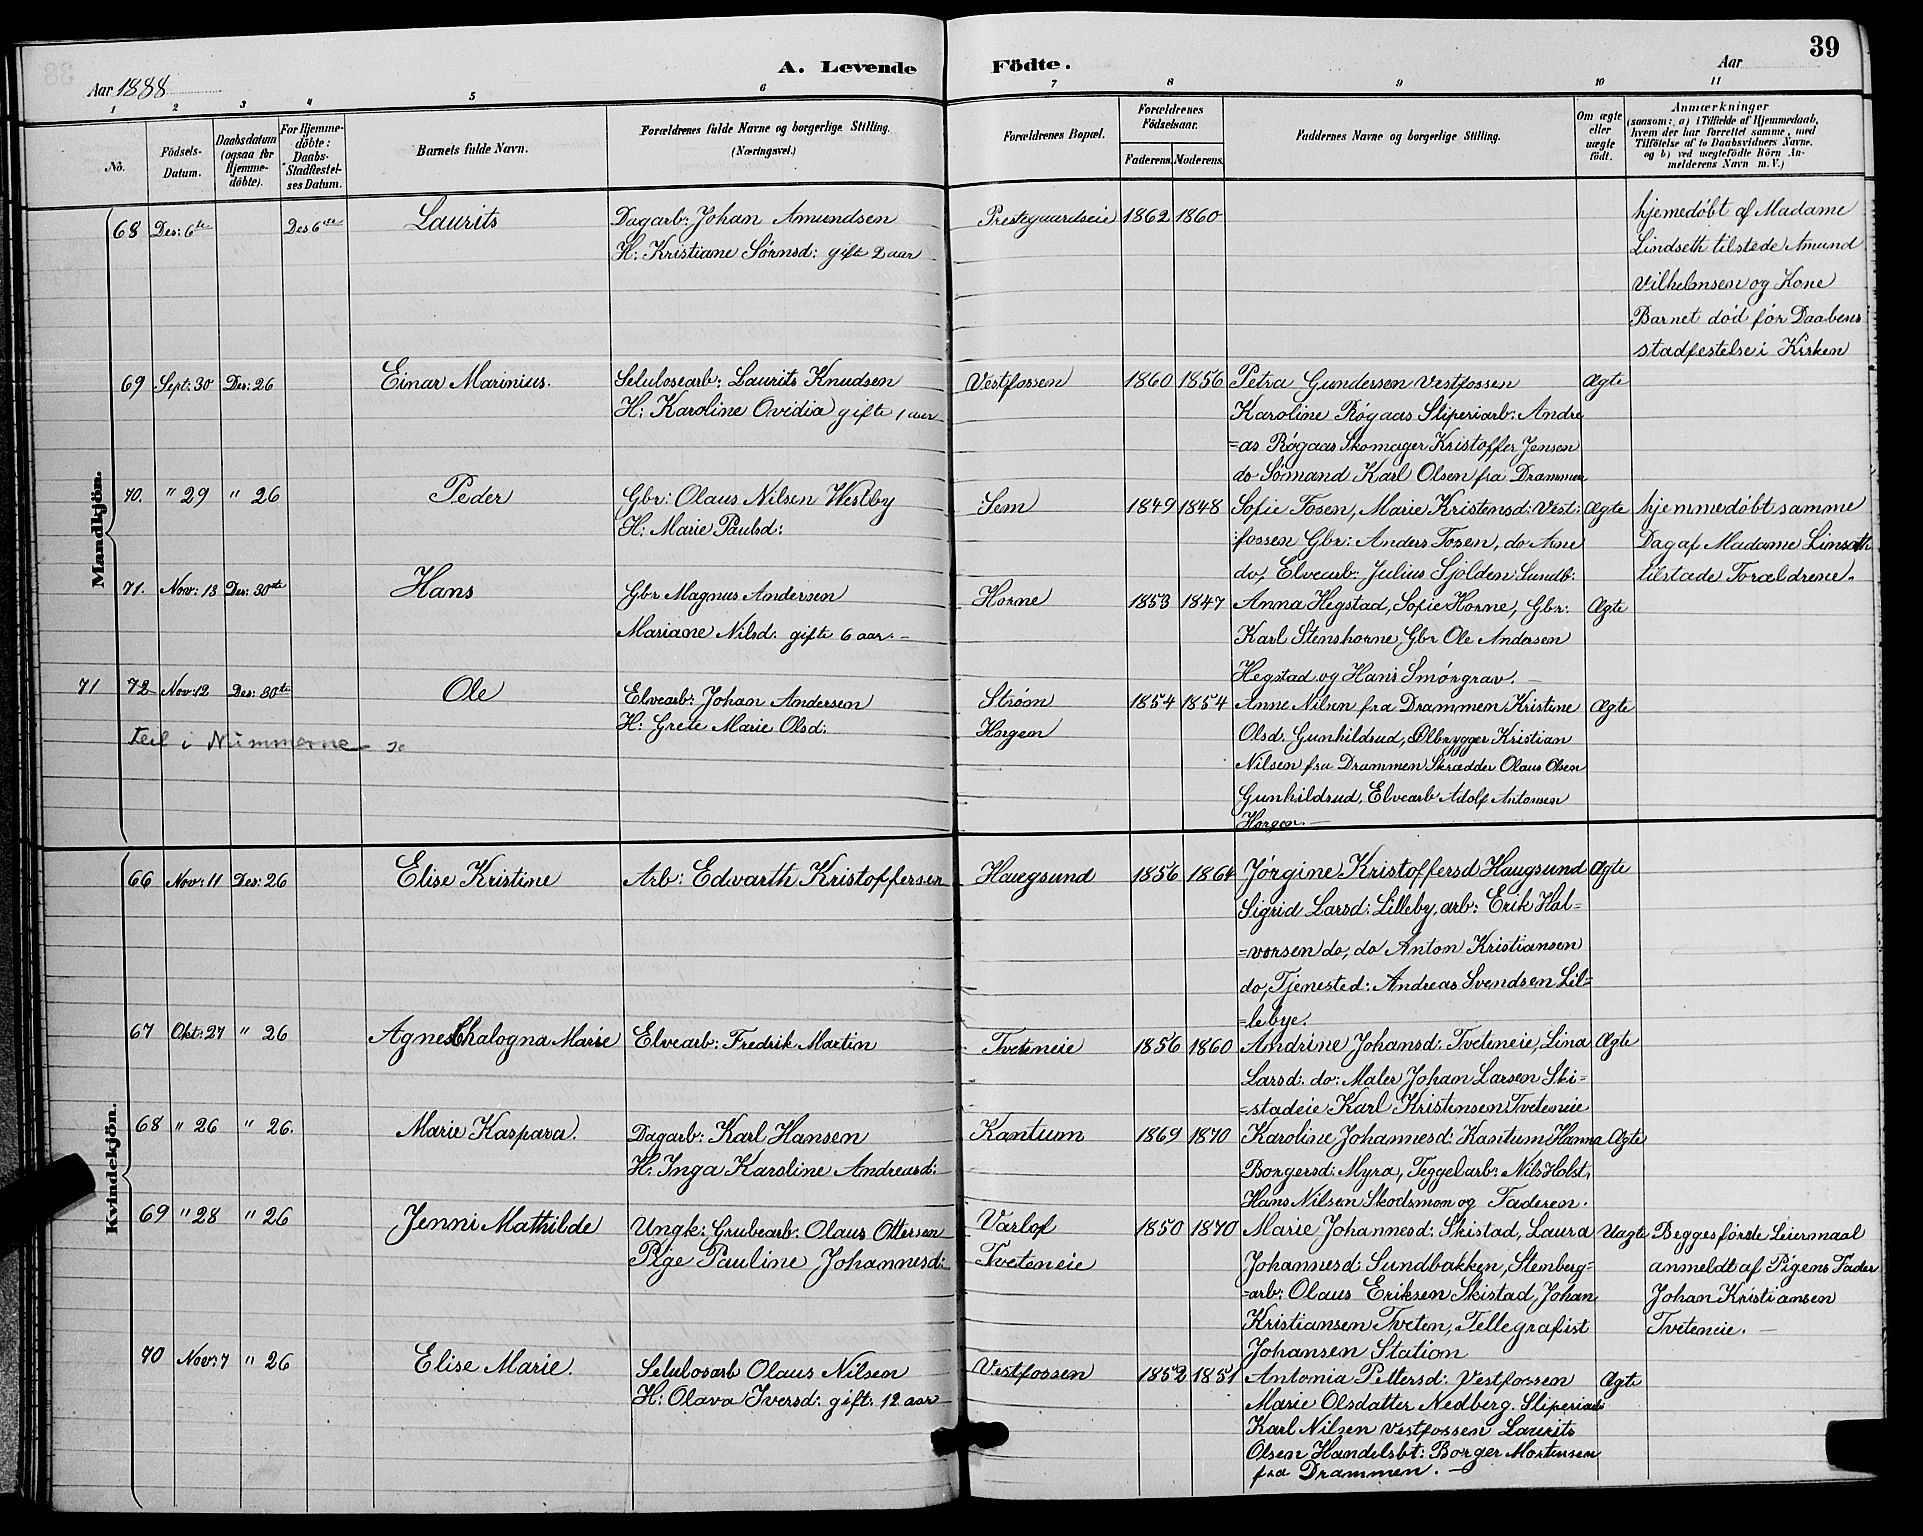 39
A. Levende Födte.
Aar 1888
Aar
1 2 3 4 5 6 7 8 9 10 11
No.
Födsels-Datum.
Daabsdatum (ogsaa for Hjemme-döbte).
For Hjemme-döbte: Daabs-Stadfæstel-ses Datum.
Barnets fulde Navn.
Forældrenes fulde Navne og borgerlige Stilling.
(Næringsvei.)
Forældrenes Bopæl.
Forældrenes Födselsaar.
Faderens. Moderens.
Faddernes Navne og borgerlige Stilling.
Om ægte eller uægte födt.
Anmærkninger
(saasom: a) i Tilfælde af Hjemmedaab,
hvem der har forrettet samme, med
Tilföielse af to Daabsvidners Navne.
og b) ved uægtefödte Börn An-
melderens Navn m. V.)
Mandkjön.
68 Des: 6te Des 6te Laurits Dagarb: Johan Amundsen Prestegaardseie 1862 1860 hjemedøbt af Madame
H: Kristiane Sørnsd: gifte 2 aar Lindseth tilstede Amund
Vilhelmsen og Kone
Barnet død før Daabens
stadfestelse i Kirken
69 Sept: 30 Des: 26 Einar Marinius. Selulosearb: Laurits Knudsen Vestfossen 1860 1856 Petra Gundersen Vestfossen Ægte
H: Karoline Ovidia gifte 1 aar Karoline Røgaas Sliperiarb: Andre
=as Røgaas Skomager Kristoffer Jensen
do Sømand Karl Olsen fra Drammen
70. " 29 " 26 Peder Gbr: Olaus Nilsen Westby Sem 1849 1848 Sofie Fosen, Marie Kristensd: Vest: Ægte hjemmedøbt samme
H: Marie Paulsd: fossen Gbr: Anders Fosen, do Arne Dag af Madame Linseth
do, Elvearb: Julius Sjolden Sundb: tilstede Forældrene.
71. Nov: 13 Des: 30te Hans Gbr Magnus Andersen Horne 1853 1847 Anna Hegstad, Sofie Horne, Gbr: Ægte
Mariane Nilsd: gifte 6 aar. Karl Stenshorne, Gbr Ole Andersen
Hegstad og Hans Smørgrav.
71 72 Nov: 12 Des: 30te Ole Elvearb: Johan Andersen Strøm 1854 1854 Anne Nilsen fra Drammen Kristine Ægte
Feil i Nummerne
H: Grete Marie Olsd: Horgen Olsd. Gunhildrud, Ølbrygger Kristian
Nilsen fra Drammen Skrædder Olaus Olsen
Gunhildrud, Elvearb Adolf Antonsen
Horgen.
Kvindekjön.
66 Nov: 11 Des: 26 Elise Kristine Arb: Edvarth Kristoffersen Haugsund 1856 1864 Jørgine Kristoffersd Haugsund Ægte
Sigrid Larsd: Lilleby, arb: Erik Hal=
=vorsen do, do Anton Kristiansen
do, Tjenested: Andreas Svendsen Lil=
=lebye.
67 Okt: 27 " 26 Agnes Chalogna Marie Elvearb: Fredrik Martin Tveteneie 1856 1860 Andrine Johansd: Tveteneie, Lina Ægte
Larsd. do: Maler Johan Larsen Ski=
=stadeie Karl Kristensen Tveteneie
68 " 26 " 26. Marie Kaspara. Dagarb: Karl Hansen Kantum 1869 1870 Karoline Johannesd: Kantum Hanna Ægte
H: Inga Karoline Andreasd: Borgersd: Myra, Teggelarb: Nils Holst,
Hans Nilsen Skodsmon og Faderen.
69 " 28 " 26 Jenni Mathilde Ungk: Grubearb: Olaus Ottersen Varlof 1850 1870 Marie Johannesd: Skistad, Laura Uagte Begges første Leiermaal
Pige Pauline Johannesd: Tveteneie Johannesd: Sundbakken, Stenberg= anmeldt af Pigens Fader
=arb: Olaus Eriksen Skistad, Johan Johan Kristiansen
Kristiansen Tveten, Tellegrafist Tveteneie.
Johansen Station
70 Nov: 7 " 26 Elise Marie. Selulosarb Olaus Nilsen Vestfossen 1852 1851 Antonia Pettersd: Vestfossen Ægte
H: Olava Iversd: gift: 12 aar Marie Olsdatter Nedberg. Sliperiarb
Karl Nilsen Vestfossen Laurits
Olsen Handelsbt: Borger Mortensen
fra Drammen.